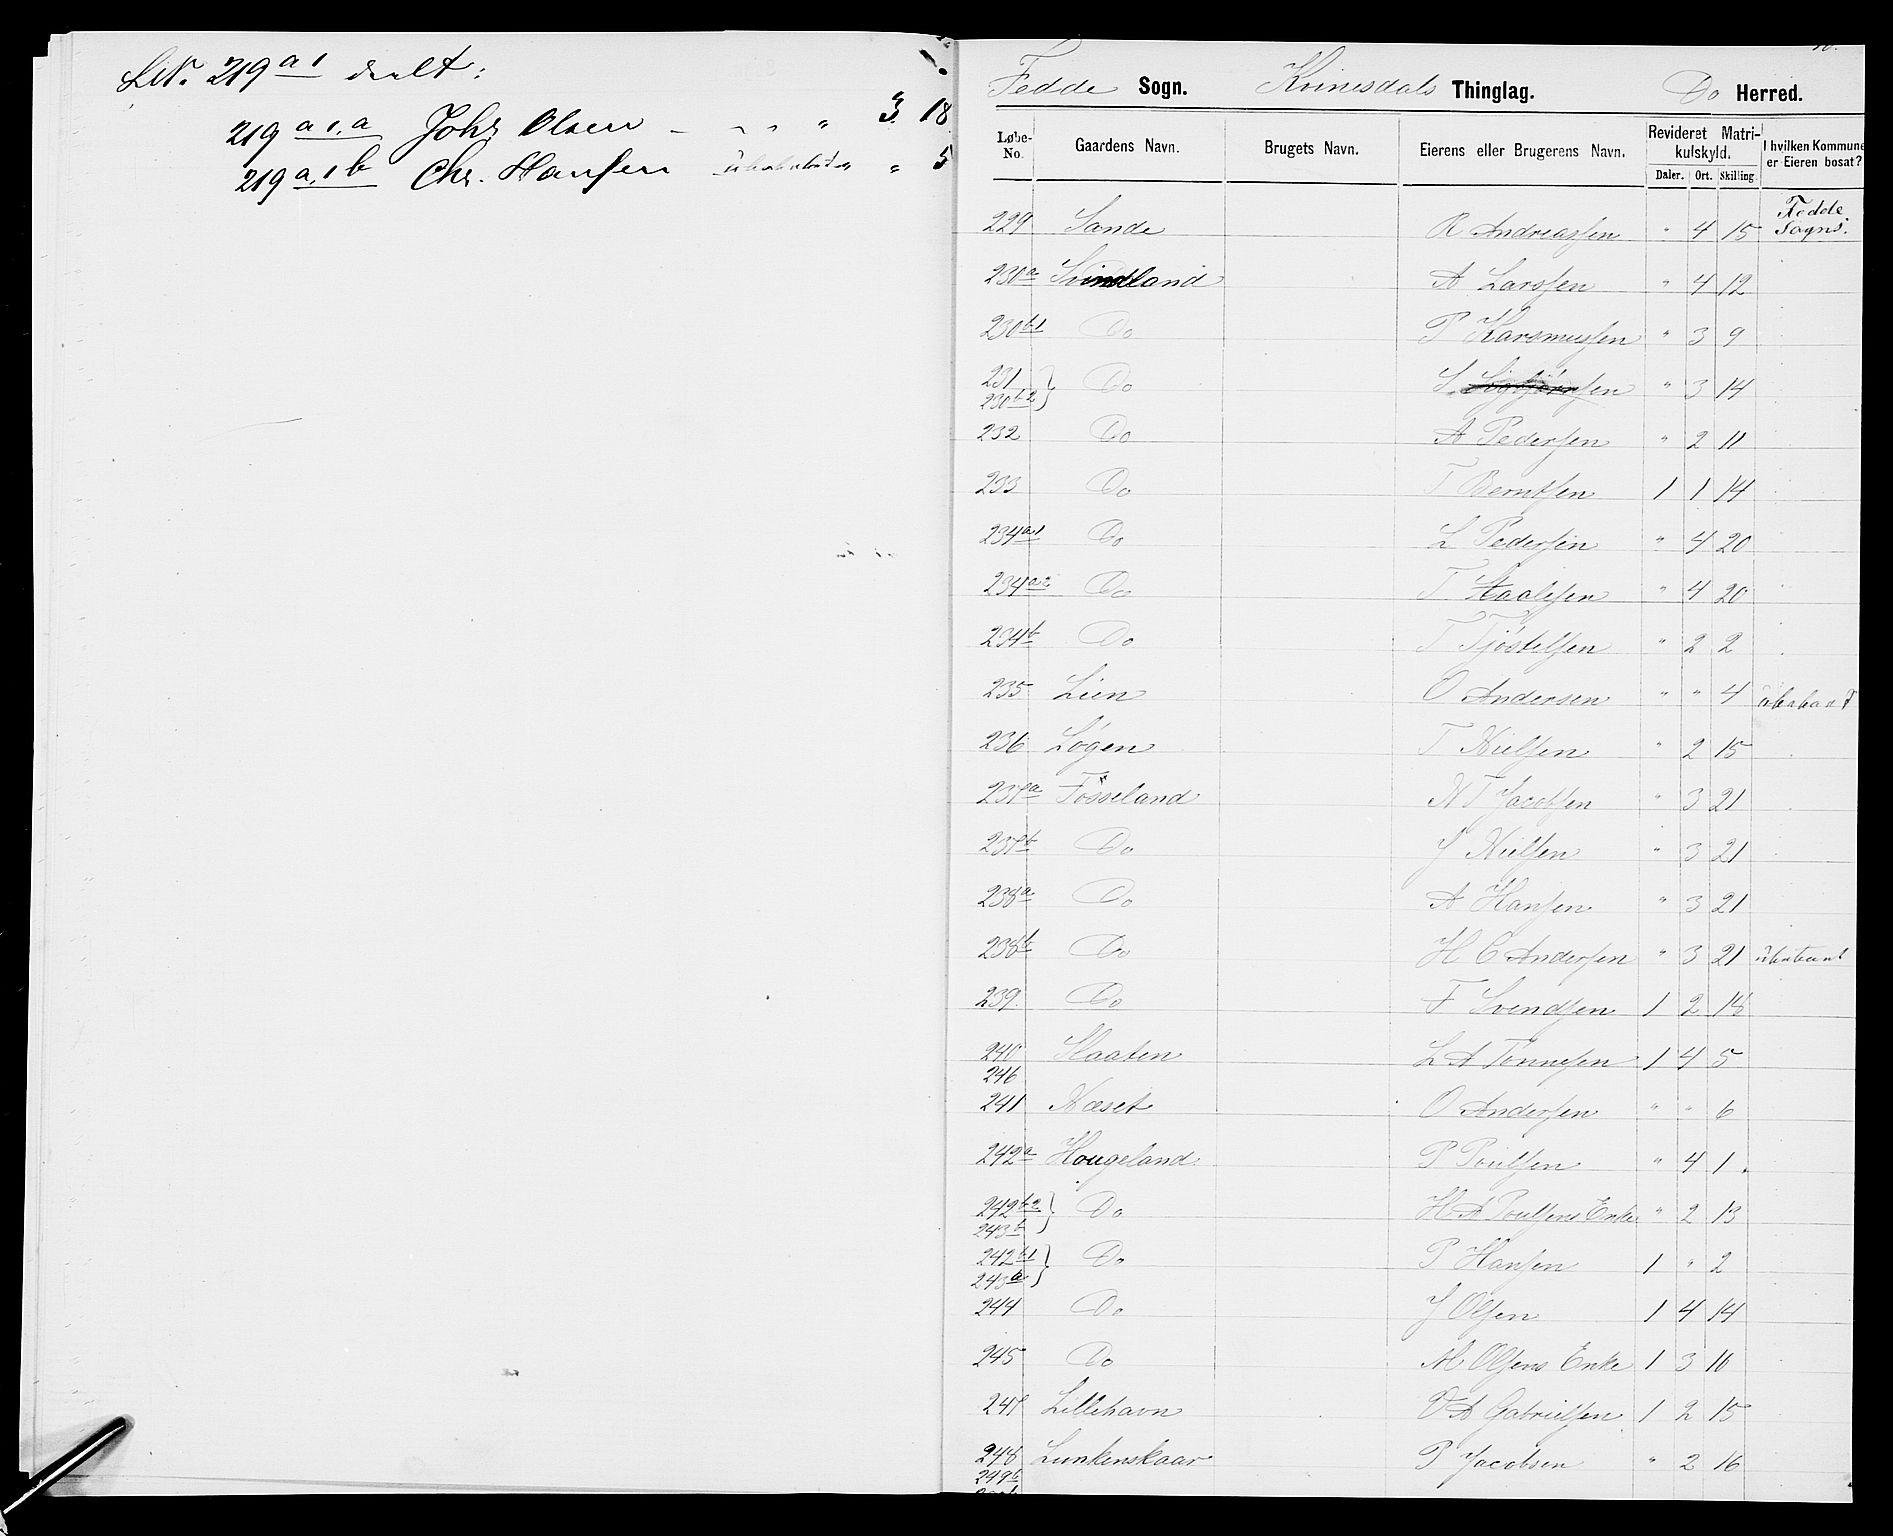 LNr. 219 a1 deelt:
219 a1.a Johs Olsen " 3 18
219 a.1 b Chr. Hansen " 5
Fedde Sogn. Kvinesdals Thinglag. Do Herred.
Løbe-No. Gaardens Navn. Brugets Navn. Eierens eller Brugerens Navn. Revideret Matrikulskyld. Daler. Ort. Skilling I hvilken Kommune er Eieren bosat?
229 Sande R Andreassen " 4 15 Fedde Sogns.
230a Svindland A Larssen " 4 12
230b1 Do P Harsmussen " 3 9
231 230b2 } Do S Sigbjörnsen " 3 14
232 Do A Pedersen " 2 11
233 Do T Berntsen 1 1 14
234a1 Do L Pedersen " 4 20
234a2 Do T Staalesen " 4 20
234b Do T Tjöstelsen " 2 2
235 Lien O Andersen " " 4 ubeboet
236 Løgen T Nielsen " 2 15
237a Fösseland N T Jacobsen " 3 21
237b Do J Nielsen " 3 21
238a Do A Hansen " 3 21
238b Do H C Andersen " 3 21
239. Do F Svendsen 1 2 18
240 246 Slaaten L A Tønnesen 1 4 5
241 Næset O Andersen " " 6
242a Hougeland P Poulsen " 4 1.
242b2 243b } Do H A Poulsens Enke " 2 13
242b1 243a } Do P Hansen 1 " 2
244 Do J Olsen 1 4 14
245 Do M Olsens Enke 1 3 10
247 Lillehavn O A Gabrielsen 1 2 15
248 249b Lunkenskaar P Jacobsen " 2 16